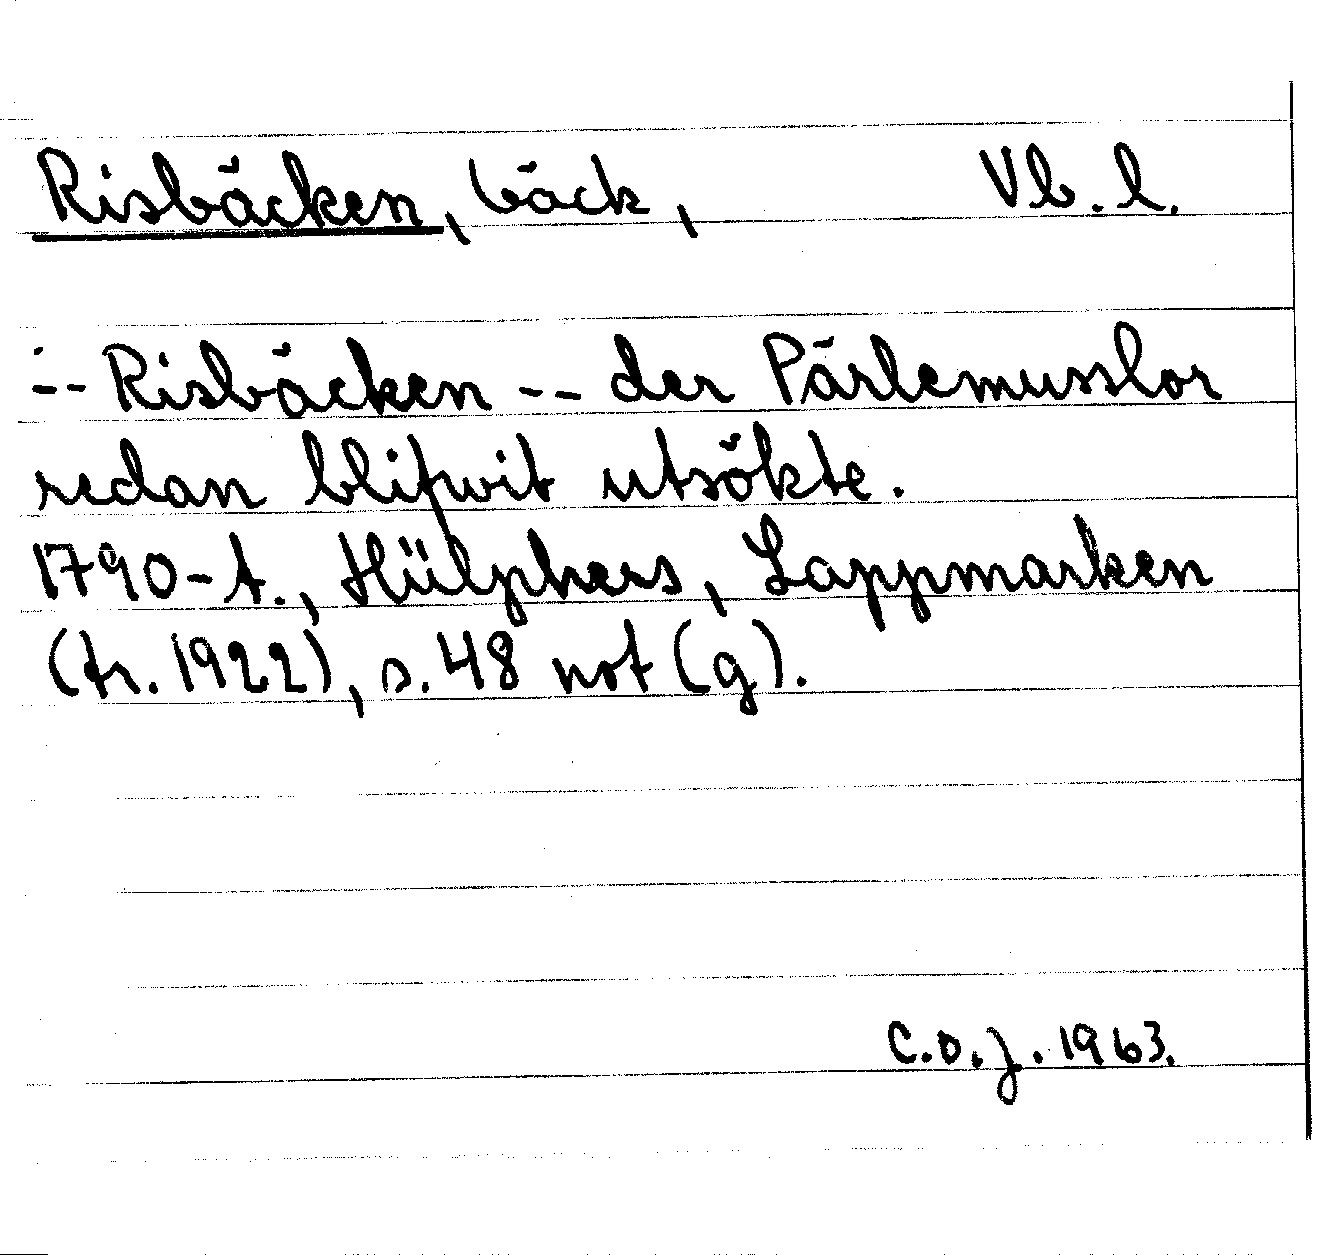 Risbäcken, bäck, Vb. l.
-- Risbäcken -- der Pärlemusslor
redan blifwit utsökte.
1790-t., Hülphers, Lappmarken
(tr. 1922), s. 48 not (g).
C.O.J. 1963.